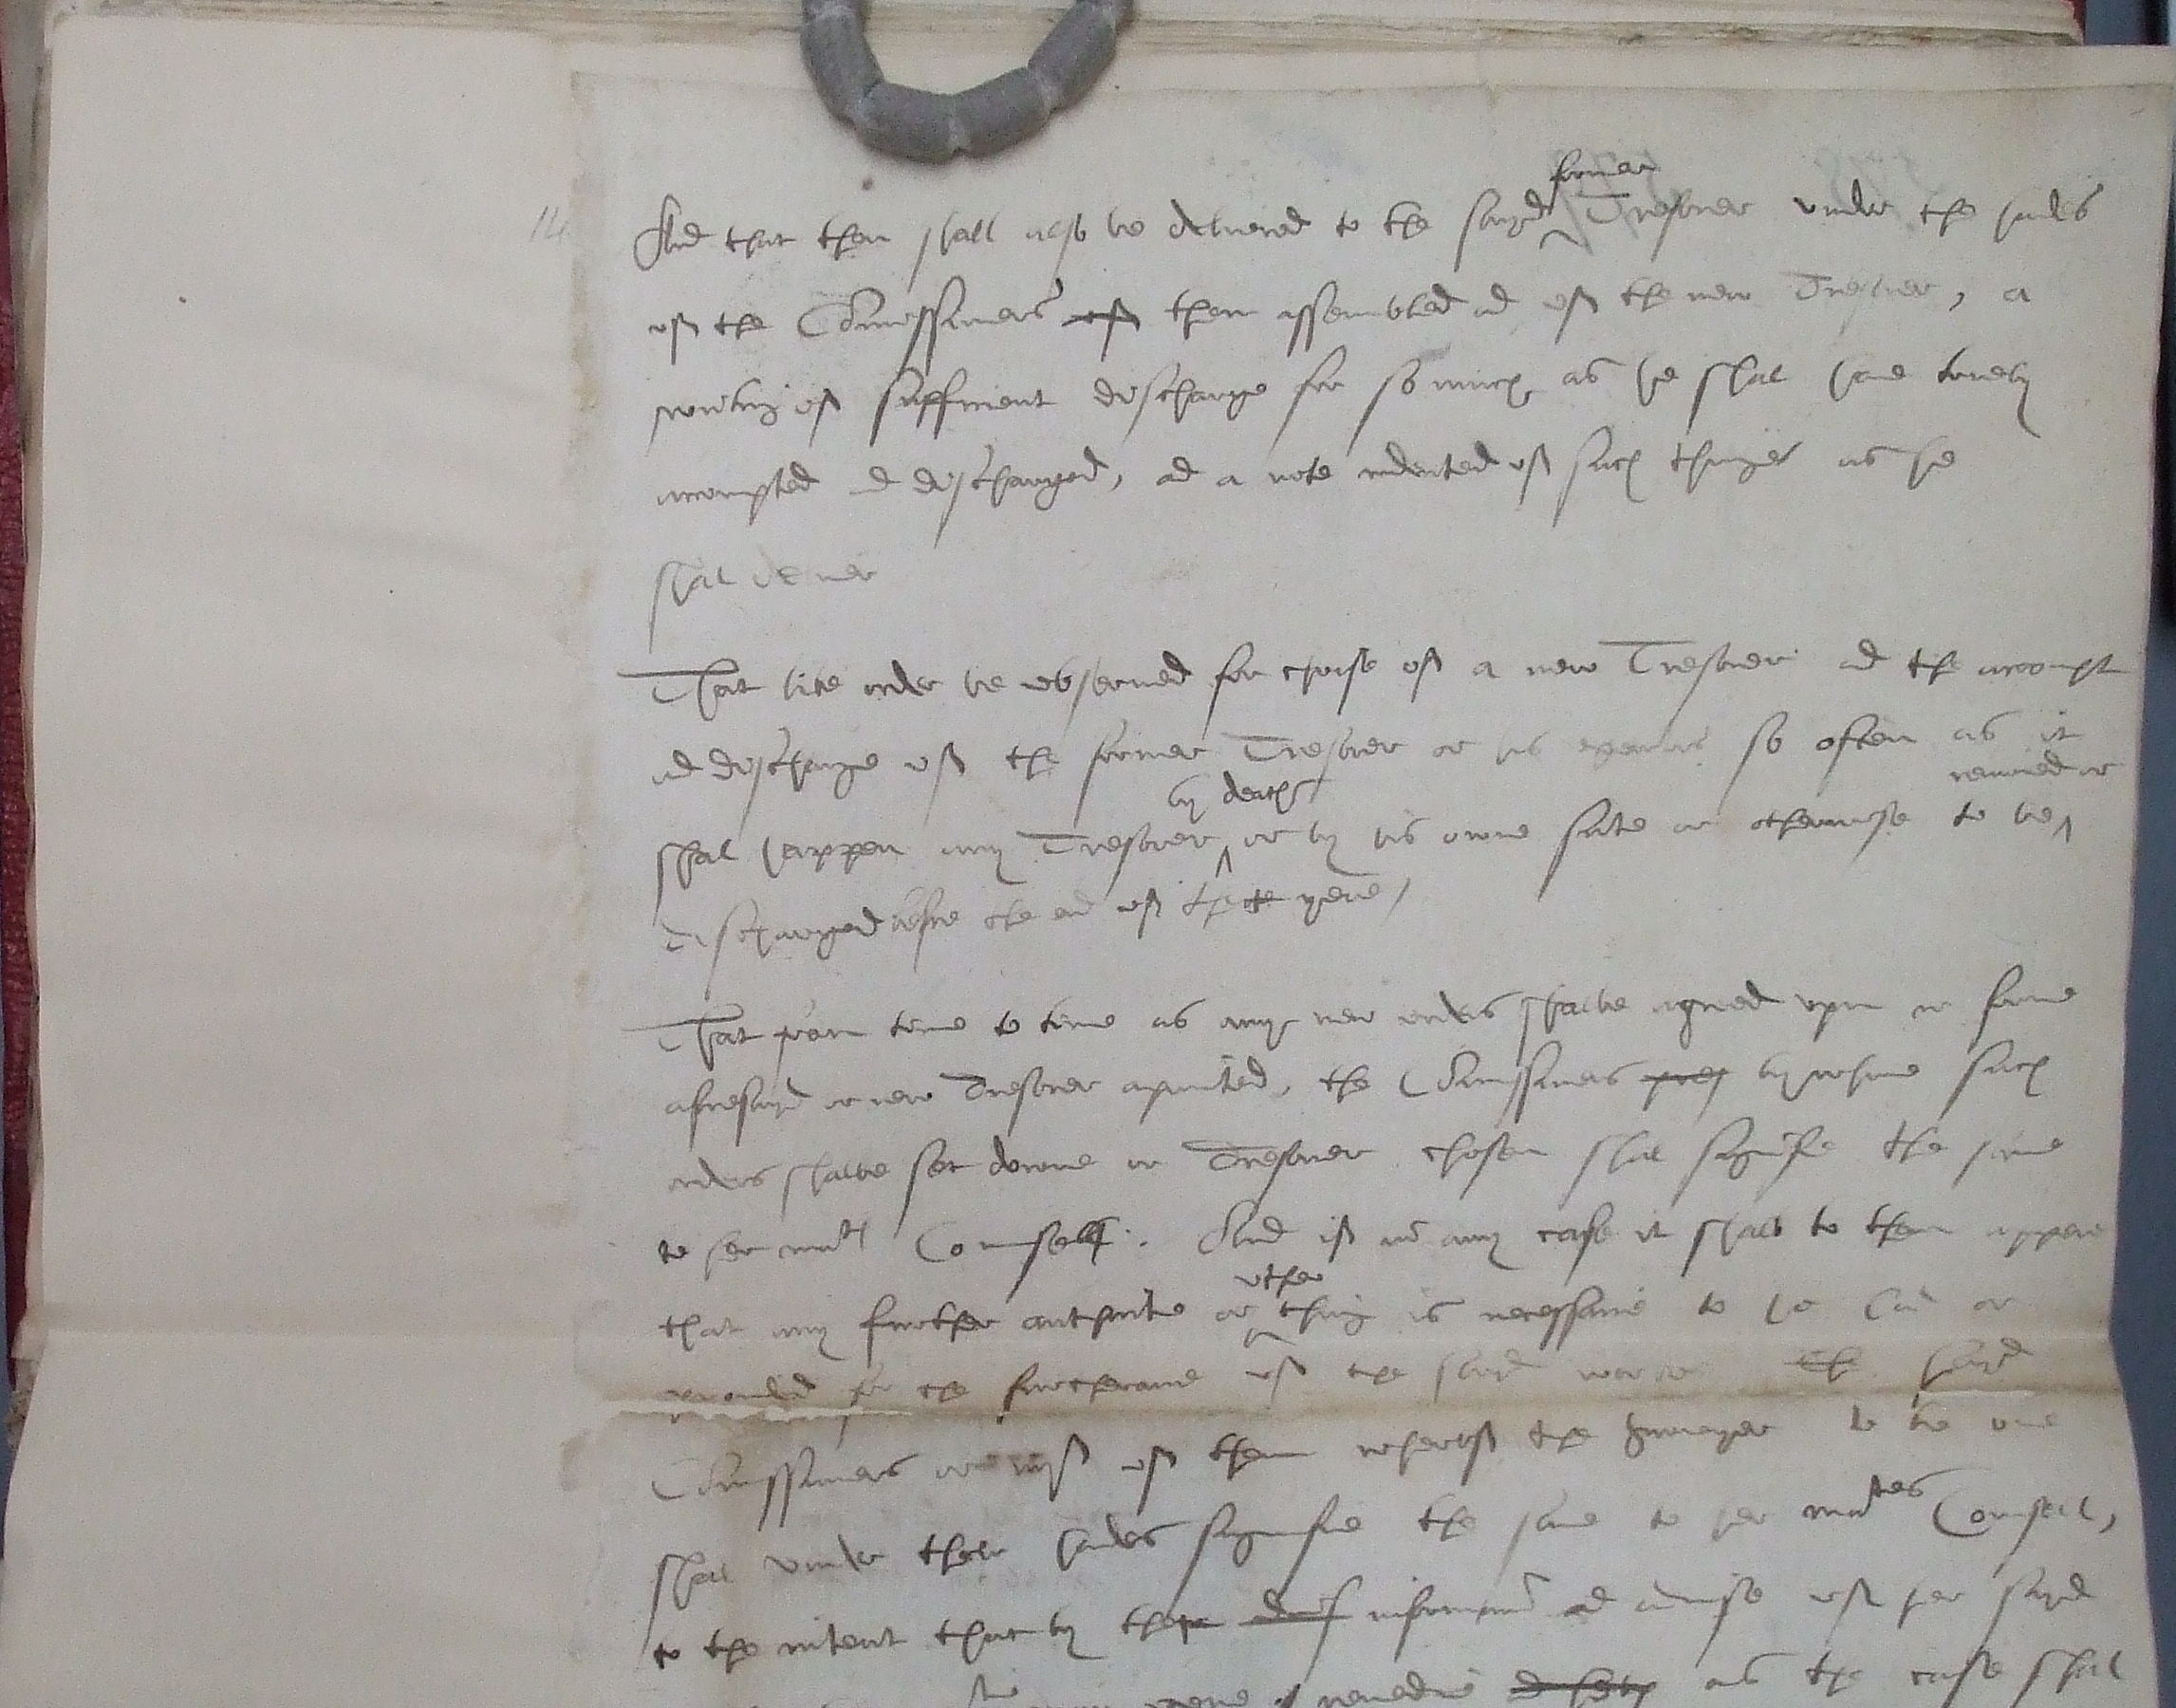 14
And that then shall also be delivered to the sayd former Tresorer under the handes
of the Comissioners of then assembled ad of the new Tresorer, a
writing of sufficient discharge for so much as he shal have truely
accompted ad discharged, ad a note indented of such thinges as he
shal deliver
That like order be observed for choise of a new Tresorer ad the accompt
ad discharge of the former Tresorer or his executors so often as it
shal happen any Tresorer by death or by his owne sute or otherwise to be removed or
discharged before the end of the yere,
That from time to time as any new orders shalbe agreed upon in forme
aforesayd or new Tresorer apointed, the Comissioners by whome such
orders shalbe set downe or Tresorer chosen shal signifie the same
to her matis Counsell. And if in any case it shall to them appere
that any further authoritie or other thing is necessarie to be had or
provided for the furtherance of the sayd worke the sayd
Comissioners or of them wherof the surveyer to be one
shal under their handes signifie the same to her mates Counsell,
to the intent that by their information ad advise of her sayd
remedie as the case shal